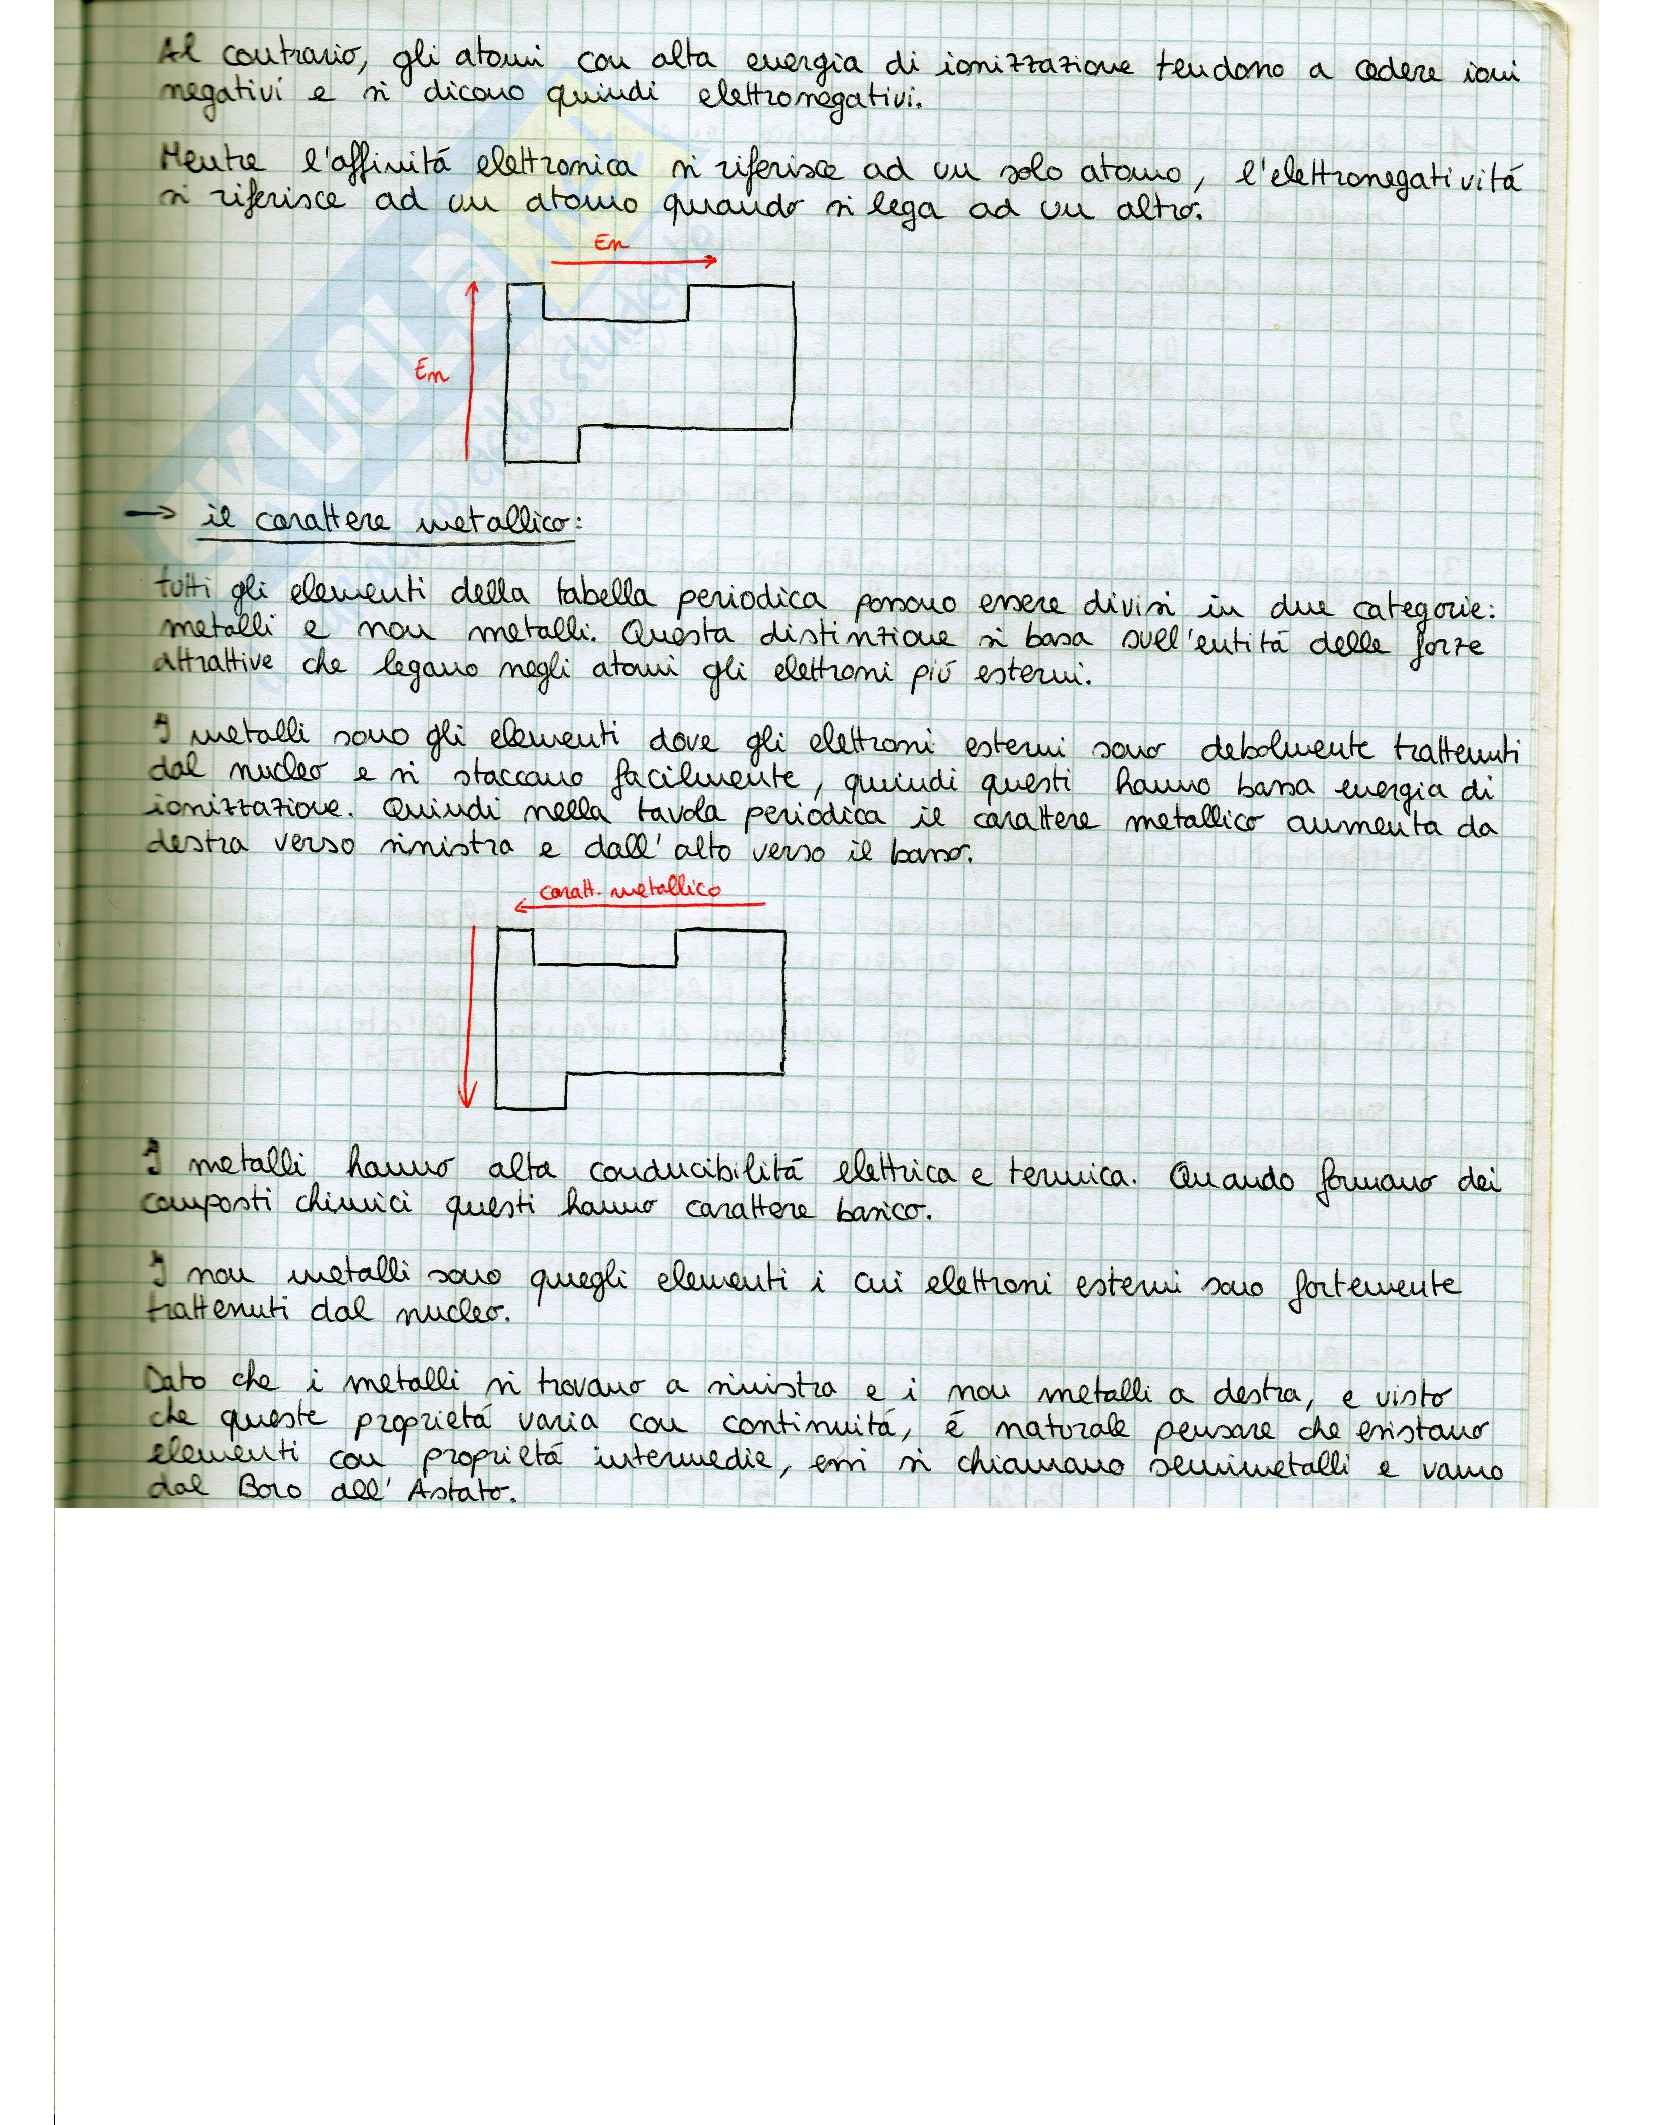 Al contrario, gli atomi con alta energia di ionizzazione tendono a cedere ioni
negativi e si dicono quindi elettronegativi.
Mentre l'affinitá elettronica si riferisce ad un solo atomo, l'elettronegativitá
si riferisce ad un atomo quando si lega ad un altro.
En
En
→ il carattere metallico:
tutti gli elementi della tabella periodica possono essere divisi in due categorie:
metalli e non metalli. Questa distinzione si basa sull'entitá delle forze
attrattive che legano negli atomi gli elettroni piú esterni.
I metalli sono gli elementi dove gli elettroni esterni sono debolmente trattenuti
dal nucleo e si staccano facilmente, quindi questi hanno bassa energia di
ionizzazione. Quindi nella tavola periodica il carattere metallico aumenta da
destra verso sinistra e dall'alto verso il basso.
caratt. metallico
I metalli hanno alta conducibilitá elettrica e termica. Quando formano dei
composti chimici questi hanno carattere basico.
I non metalli sono quegli elementi i cui elettroni esterni sono fortemente
trattenuti dal nucleo.
Dato che i metalli si trovano a sinistra e i non metalli a destra, e visto
che queste proprietá varia con continuitá, é naturale pensare che esistano
elementi con proprietá intermedie, essi si chiamano semimetalli e vanno
dal Boro all'Astato.